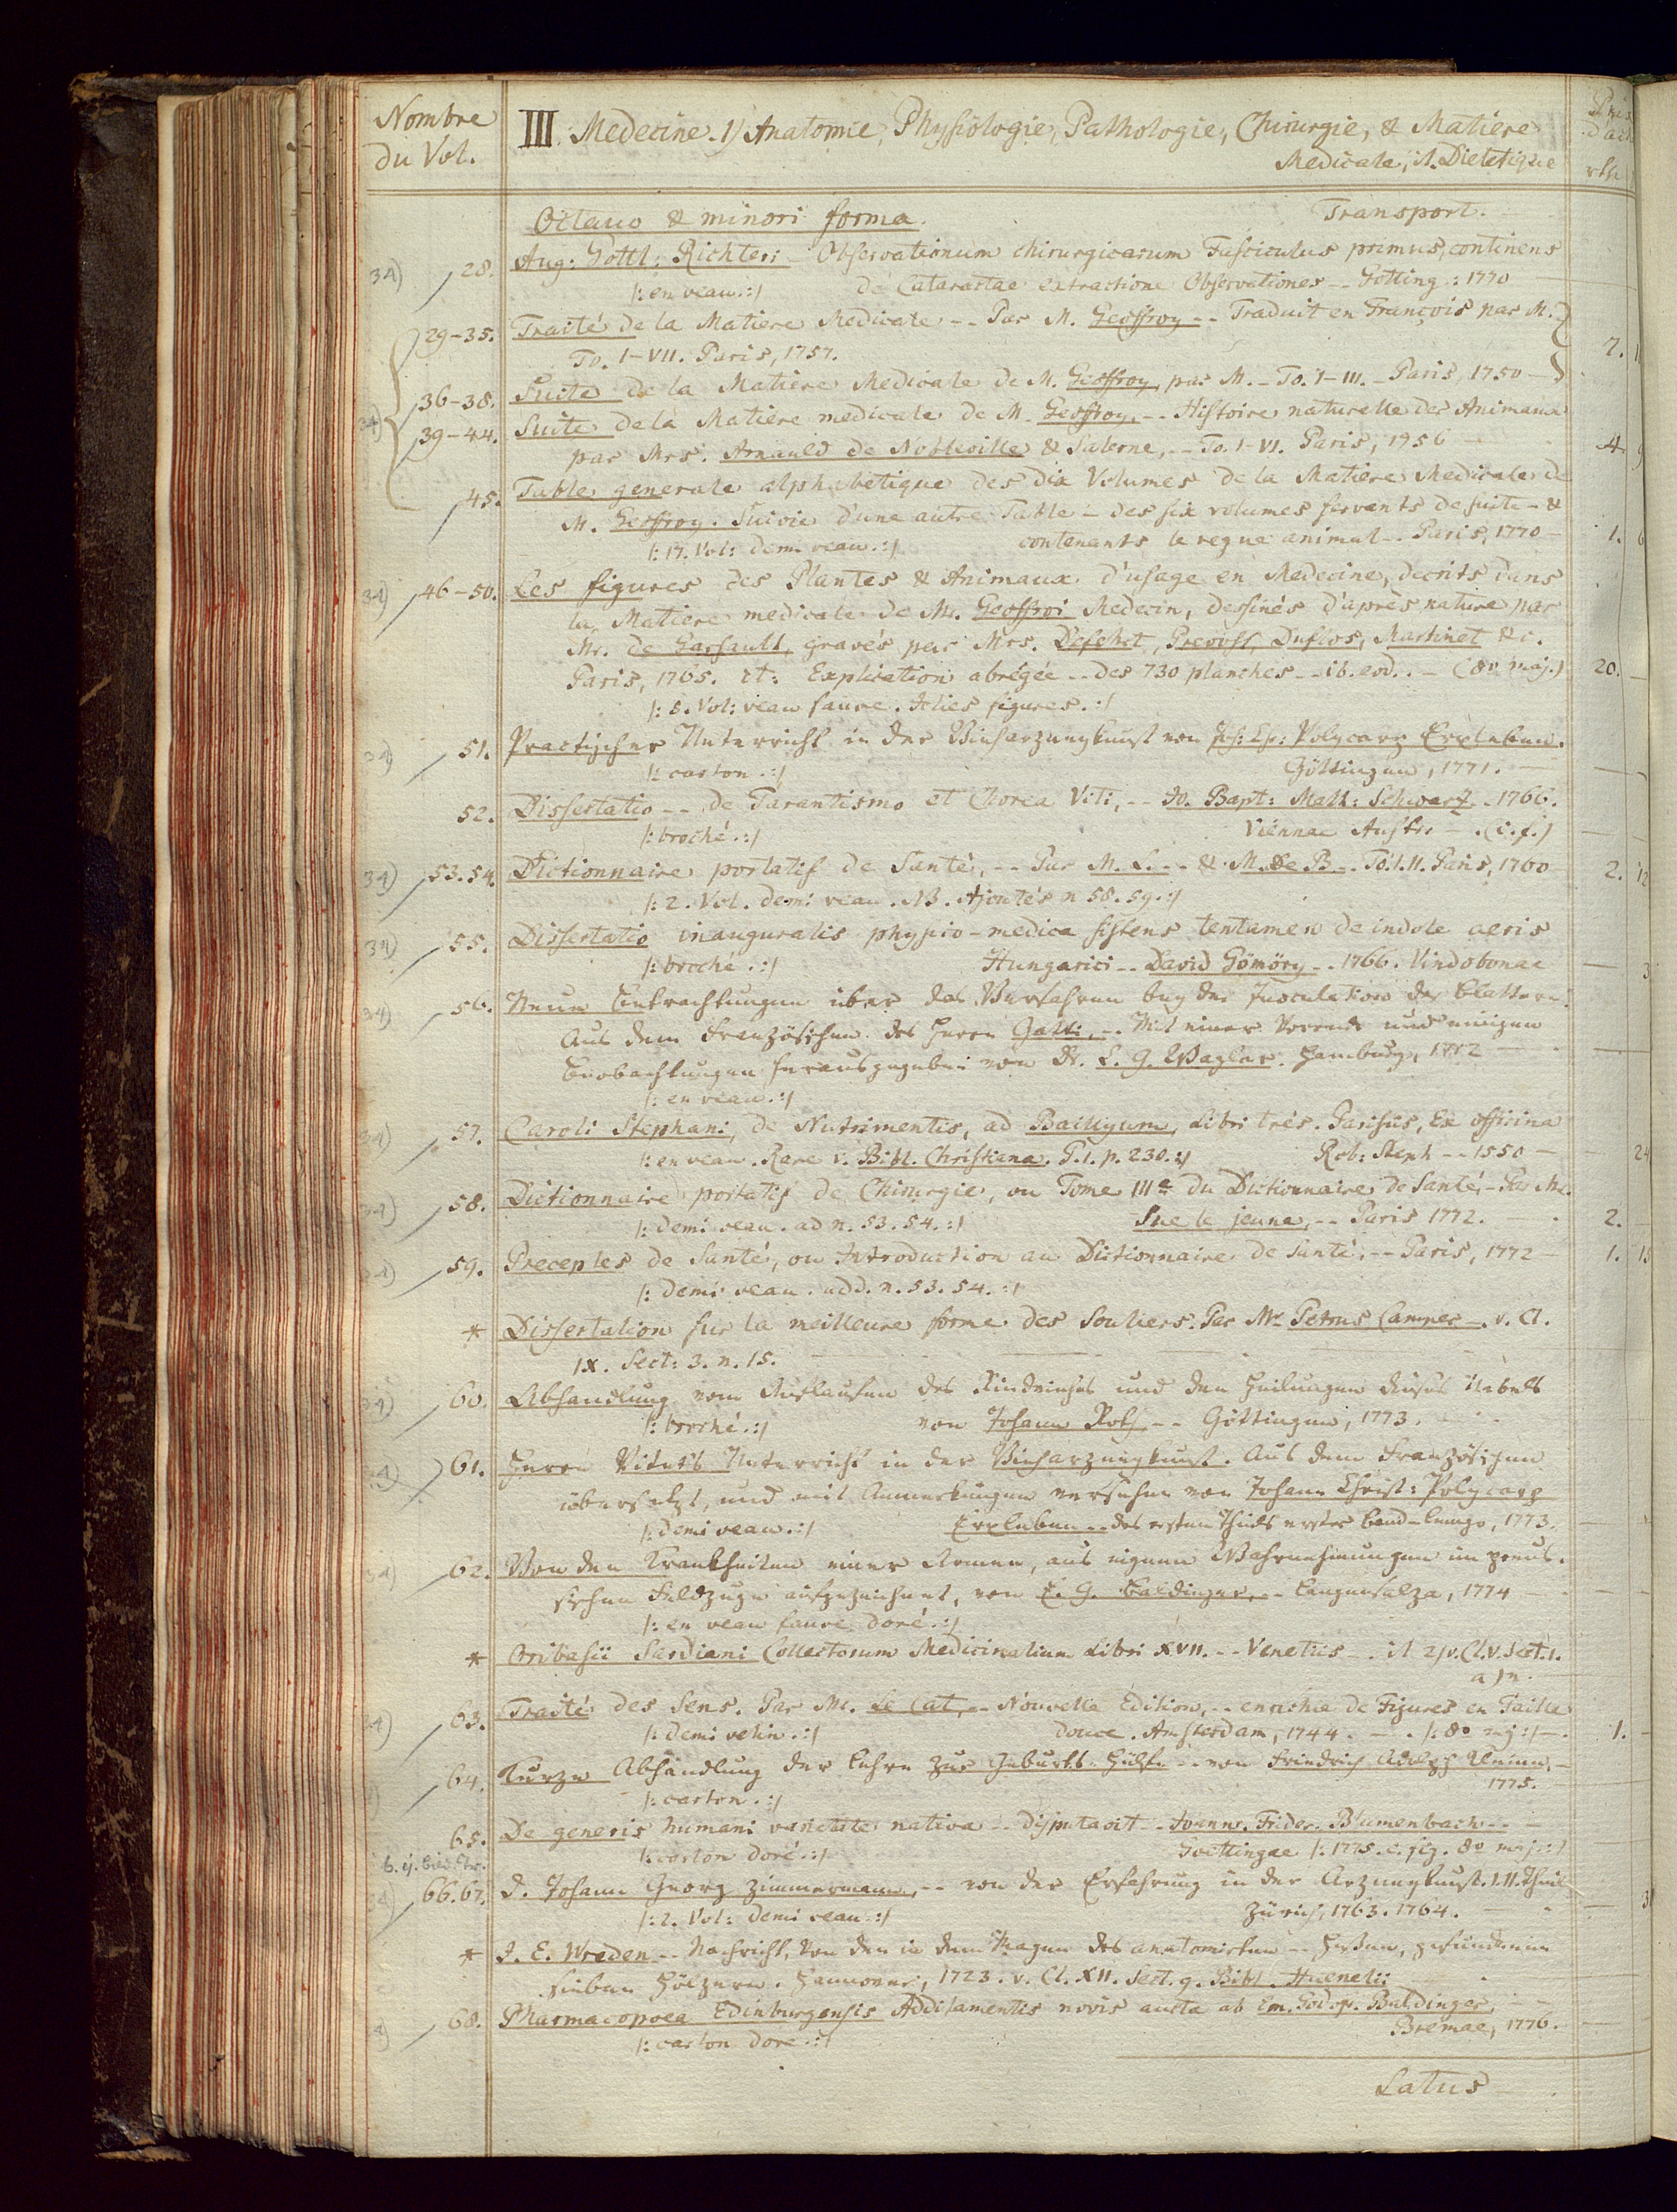 Nombre
du Vol.
III. Medecine. 1) Anatomie, Physiologie, Pathologie, Chirurgie, & Matière
Medicale, it. Dietetique
rth
Octavo & minori forma.
Transport.
34) 28. Aug: Gottl: Richteri Observationum chirurgicarum Fasciculus primus, continens
/: en veau. :/ de Cataractae extractione Observationes -- Gotting: 1770
29-35. Traité de la Matiere Medicale -- Par M. Geoffroy -- Traduit en François par M.
To. I-VII. Paris, 1757.
7.
36-38. Suite de la Matiere Medicale de M. Geoffroy, par M. - To. I-III. - Paris, 1750 -
34) 39-44. Suite de la Matiere medicale de M. Geoffroy, -- Histoire naturelle des Animaux
par Mrs. Arnauld de Nobleville & Salerne, -- To. I-VI. Paris, 1756
4.
45. Table generale alphabetique des dix Volumes de la Matiere Medicale de
M. Geoffroy. Suivie d'une autre Table - des six volumes servants de suite - &
/: 17. Vol: demi veau. :/ contenants le regne animal -- Paris, 1770 - 1.
34) 46-50. Les figures des Plantes & Animaux d'usage en Medecine, decrits dans
la Matiere medicale de Mr. Geoffroi Medecin, dessinés d'après nature par
Mr. de Garsault, gravés par Mrs. Defehrt, Prevost, Duflos, Martinet &c.
Paris, 1765. it: Explication abrégée -- des 730 planches -- ib. eod. - (8o maj.) 20.
/: 5. Vol: veau fauve. Iolies figures. :/
34) 51. Practischer Unterricht in der Vieharzneykunst von Joh: Chr: Polycarp Erxleben.
/: carton. :/ Göttingen, 1771.
52. Dissertatio -- de Tarantismo et Chorea Viti, -- Io. Bapt: Matth: Schwartz -- 1766.
/: broché. :/ Viennae Austr. - (c. f.)
34) 53. 54. Dictionnaire portatif de Santé, -- Par M. L. -- & M. de B -- To. I. II. Paris, 1760 2. 12
/: 2. Vol. demi veau. NB. Ajoutés n 58. 59. :/
34) 55. Dissertatio inauguralis physico-medica sistens tentamen de indole aeris
/: broché. :/ Hungarici -- David Gömöry -- 1766. Vindobonae
34) 56. Neue Betrachtungen über das Verfahren bey der Inoculation der Blattern.
Aus dem Französischen des Herrn Gatti, -- Mit einer Vorrede und einigen
Beobachtungen herausgegeben von Dr. E. G. Wagler. Hamburg, 1772
/: en veau. :/
34) 57. Caroli Stephani, de Nutrimentis, ad Baillyum, Libri tres. Parisiis, Ex officina
/: en veau. Rare v. Bibl. Christiana. T. 1. p. 230. :/ Rob: Steph -- 1550 - 24
34) 58. Dictionnaire portatif de Chirurgie, ou Tome IIIe du Dictionnaire de Santé, - Par Mr.
/: demi veau. ad n. 53. 54. :/ Sue le jeune, -- Paris 1772. 2.
34) 59. Preceptes de Santé, ou Introduction au Dictionnaire de Santé. -- Paris, 1772 1.
/: demi veau. add. n. 53. 54. :/
* Dissertation sur la meilleure forme des Souliers. Par Mr. Petrus Camper -. v. Cl.
IX. Sect: 3. n. 15.
34) 60. Abhandlung vom Auflaufen des Rindviehes und den Heilungen dieses Uebels
/: broché. :/ von Johann Roth -- Göttingen, 1773.
34) 61. Herrn Vitets Unterricht in der Vieharzneykunst. Aus dem Französischen
übersetzt, und mit Anmerkungen versehen von Johann Christ: Polycarp
/: demi veau. :/ Erxleben -- des ersten Theils erster Band - Lemgo, 1773.
34) 62. Von den Krankheiten einer Armee, aus eignen Wahrnehmungen im preus-
sischen Feldzuge aufgezeichnet, von E. G. Baldinger, -- Langensalza, 1774
/: en veau fauve doré. :/
* Oribasii Sardiani Collectorum Medicinalium Libri XVII. -- Venetiis -. it 2) v. Cl. V. Sect. 1.
a) n.
34) 63. Traité des Sens. Par Mr. Le Cat, -- Nouvelle Edition, -- enrichie de Figures en Taille
/: demi velin. :/ douce. Amsterdam, 1744. - /: 8o maj :/ - 1.
64. Kurze Abhandlung der Lehre zur Geburts-Hülfe -- von Friedrich Adolph Kleine, -
/: carton. :/ 1775.
65. De generis humani varietate nativa -- disputavit -- Ioann. Frider. Blumenbach --
/: carton doré. :/ Goettingae /: 1775. c. fig. 8o maj. :/
34) 66. 67. D. Johann Georg Zimmermann, -- von der Erfahrung in der Arzneykunst. I. II. Theil
/: 2. Vol: demi veau. :/ Zürich, 1763. 1764.
* J. E. Wreden -- Nachricht, von den in dem Magen des anatomirten -- Hessen, gefundenen
sieben Hölzern. Hannover, 1723. v. Cl. XII. Sect. 9. Bibl. Huenelii
68. Pharmacopoea Edinburgensis Additamentis novis aucta ab Em. Godofr. Baldinger,
/: carton doré. :/ Bremae, 1776.
Latus